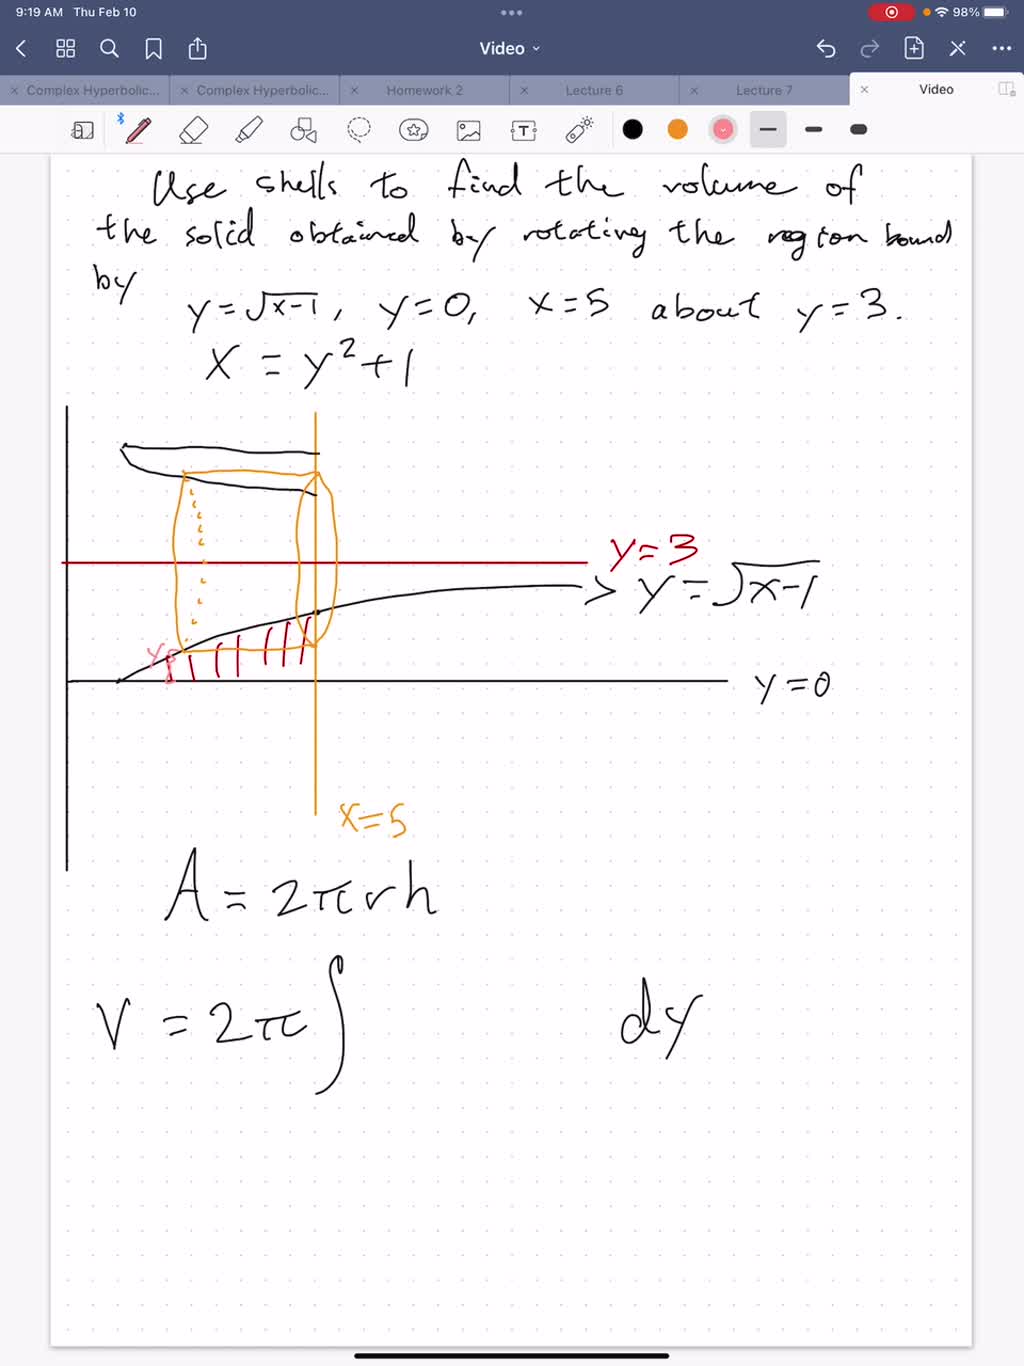 9:19 AM Thu Feb 10
98%
Video
Complex Hyperbolic...
Complex Hyperbolic...
Homework 2
Lecture 6
Lecture 7
Video
Use shells to find the volume of
the solid obtained by rotating the region bound
by
y = √x-1, y = 0, x = 5 about y = 3.
x = y² + 1
y = 3
y = √x-1
y
y = 0
x = 5
A = 2πrh
V = 2π∫ dy